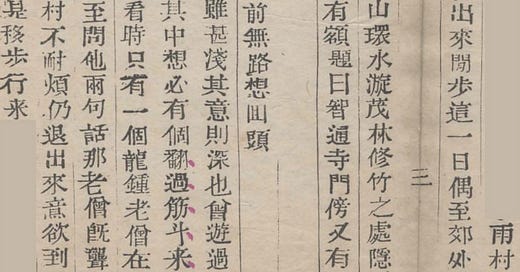 雨村
出來閒步這一日偶至郊外
三
山環水漩茂林修竹之處隱
有額題曰智通寺門傍又有
前無路想囬頭
雖甚淺其意則深也曾遊過
其中想必有個翻過筋斗来
看時只有一個龍鍾老僧在
至問他兩句話那老僧旣聾
村不耐煩仍退出來意欲到
是移步行来